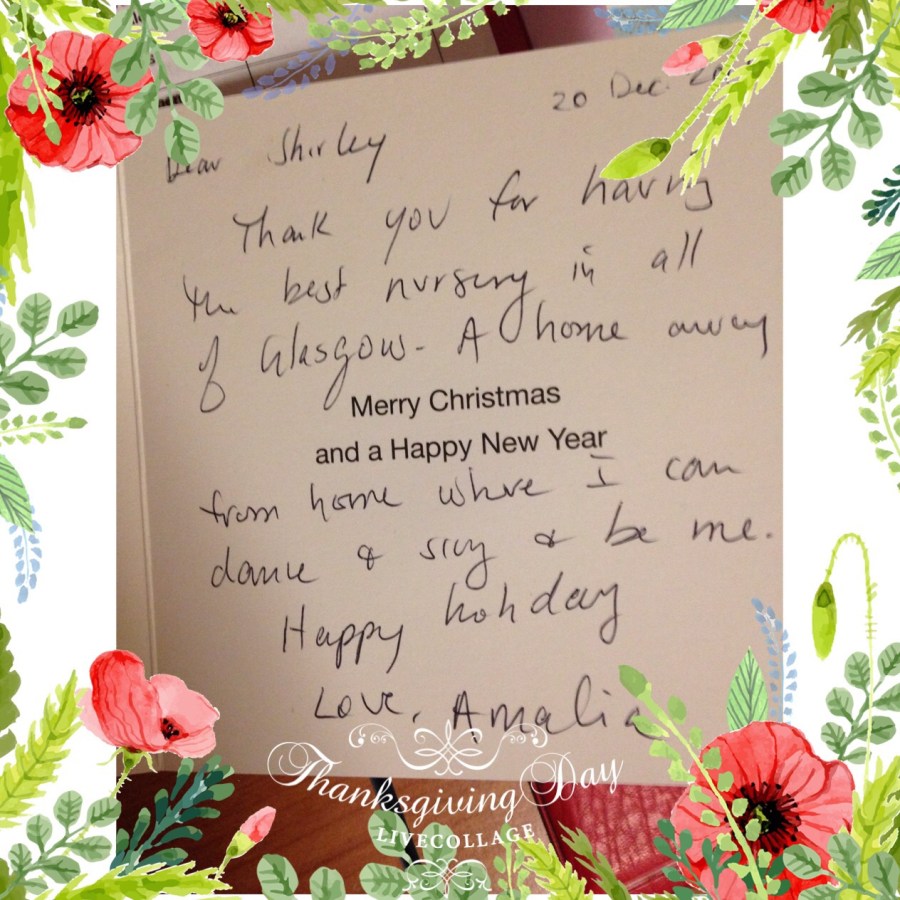 20 Dec.
Dear Shirley
Thank you for having
the best nursery in all
of Glasgow. A home away
Merry Christmas
and a Happy New Year
from home where I can
dance & sing & be me.
Happy holiday
Love, Amalia
Thanksgiving Day
LIVECOLLAGE